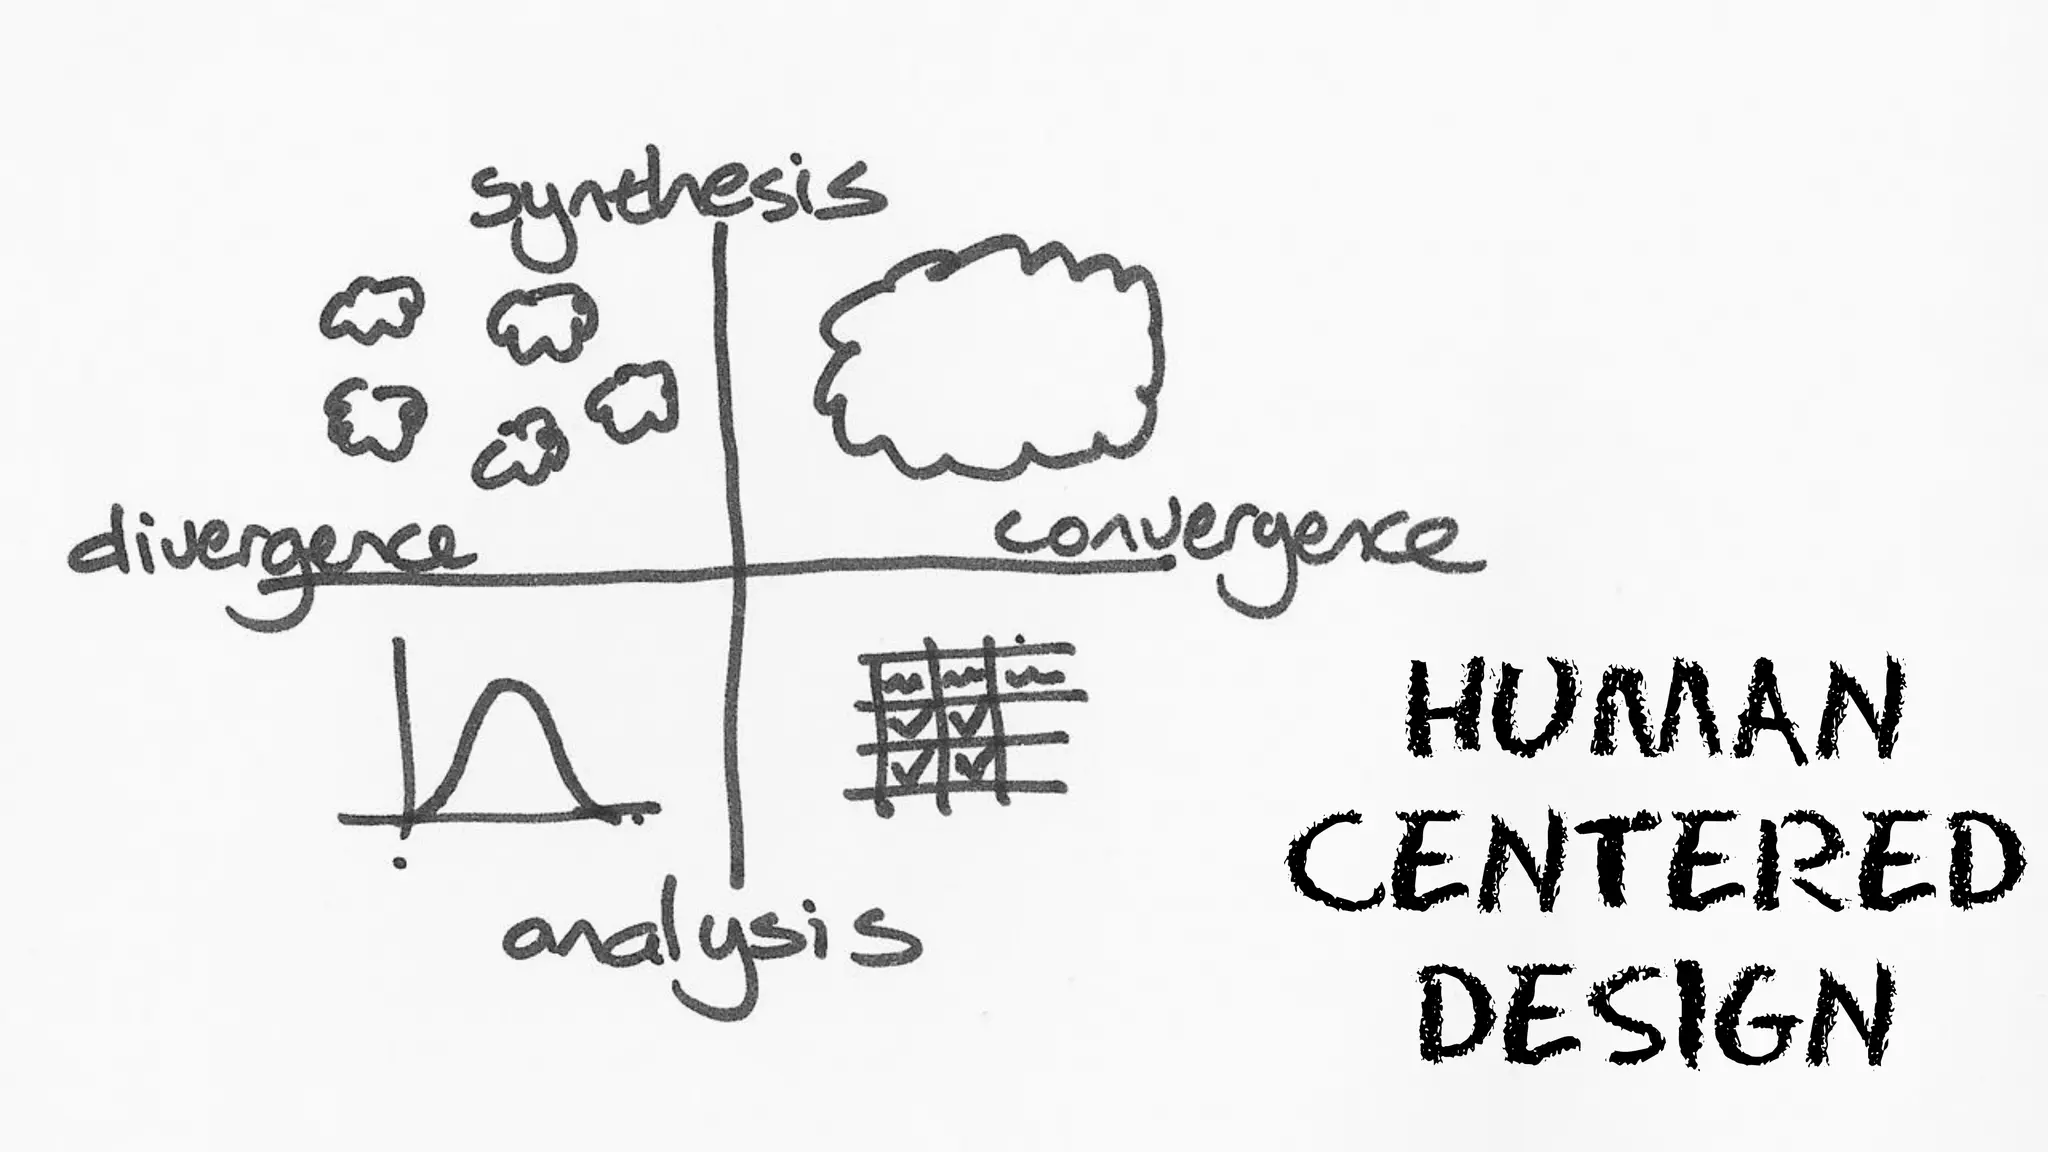 synthesis
divergence
convergence
analysis
HUMAN
CENTERED
DESIGN